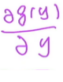 ∂g(y)
∂y